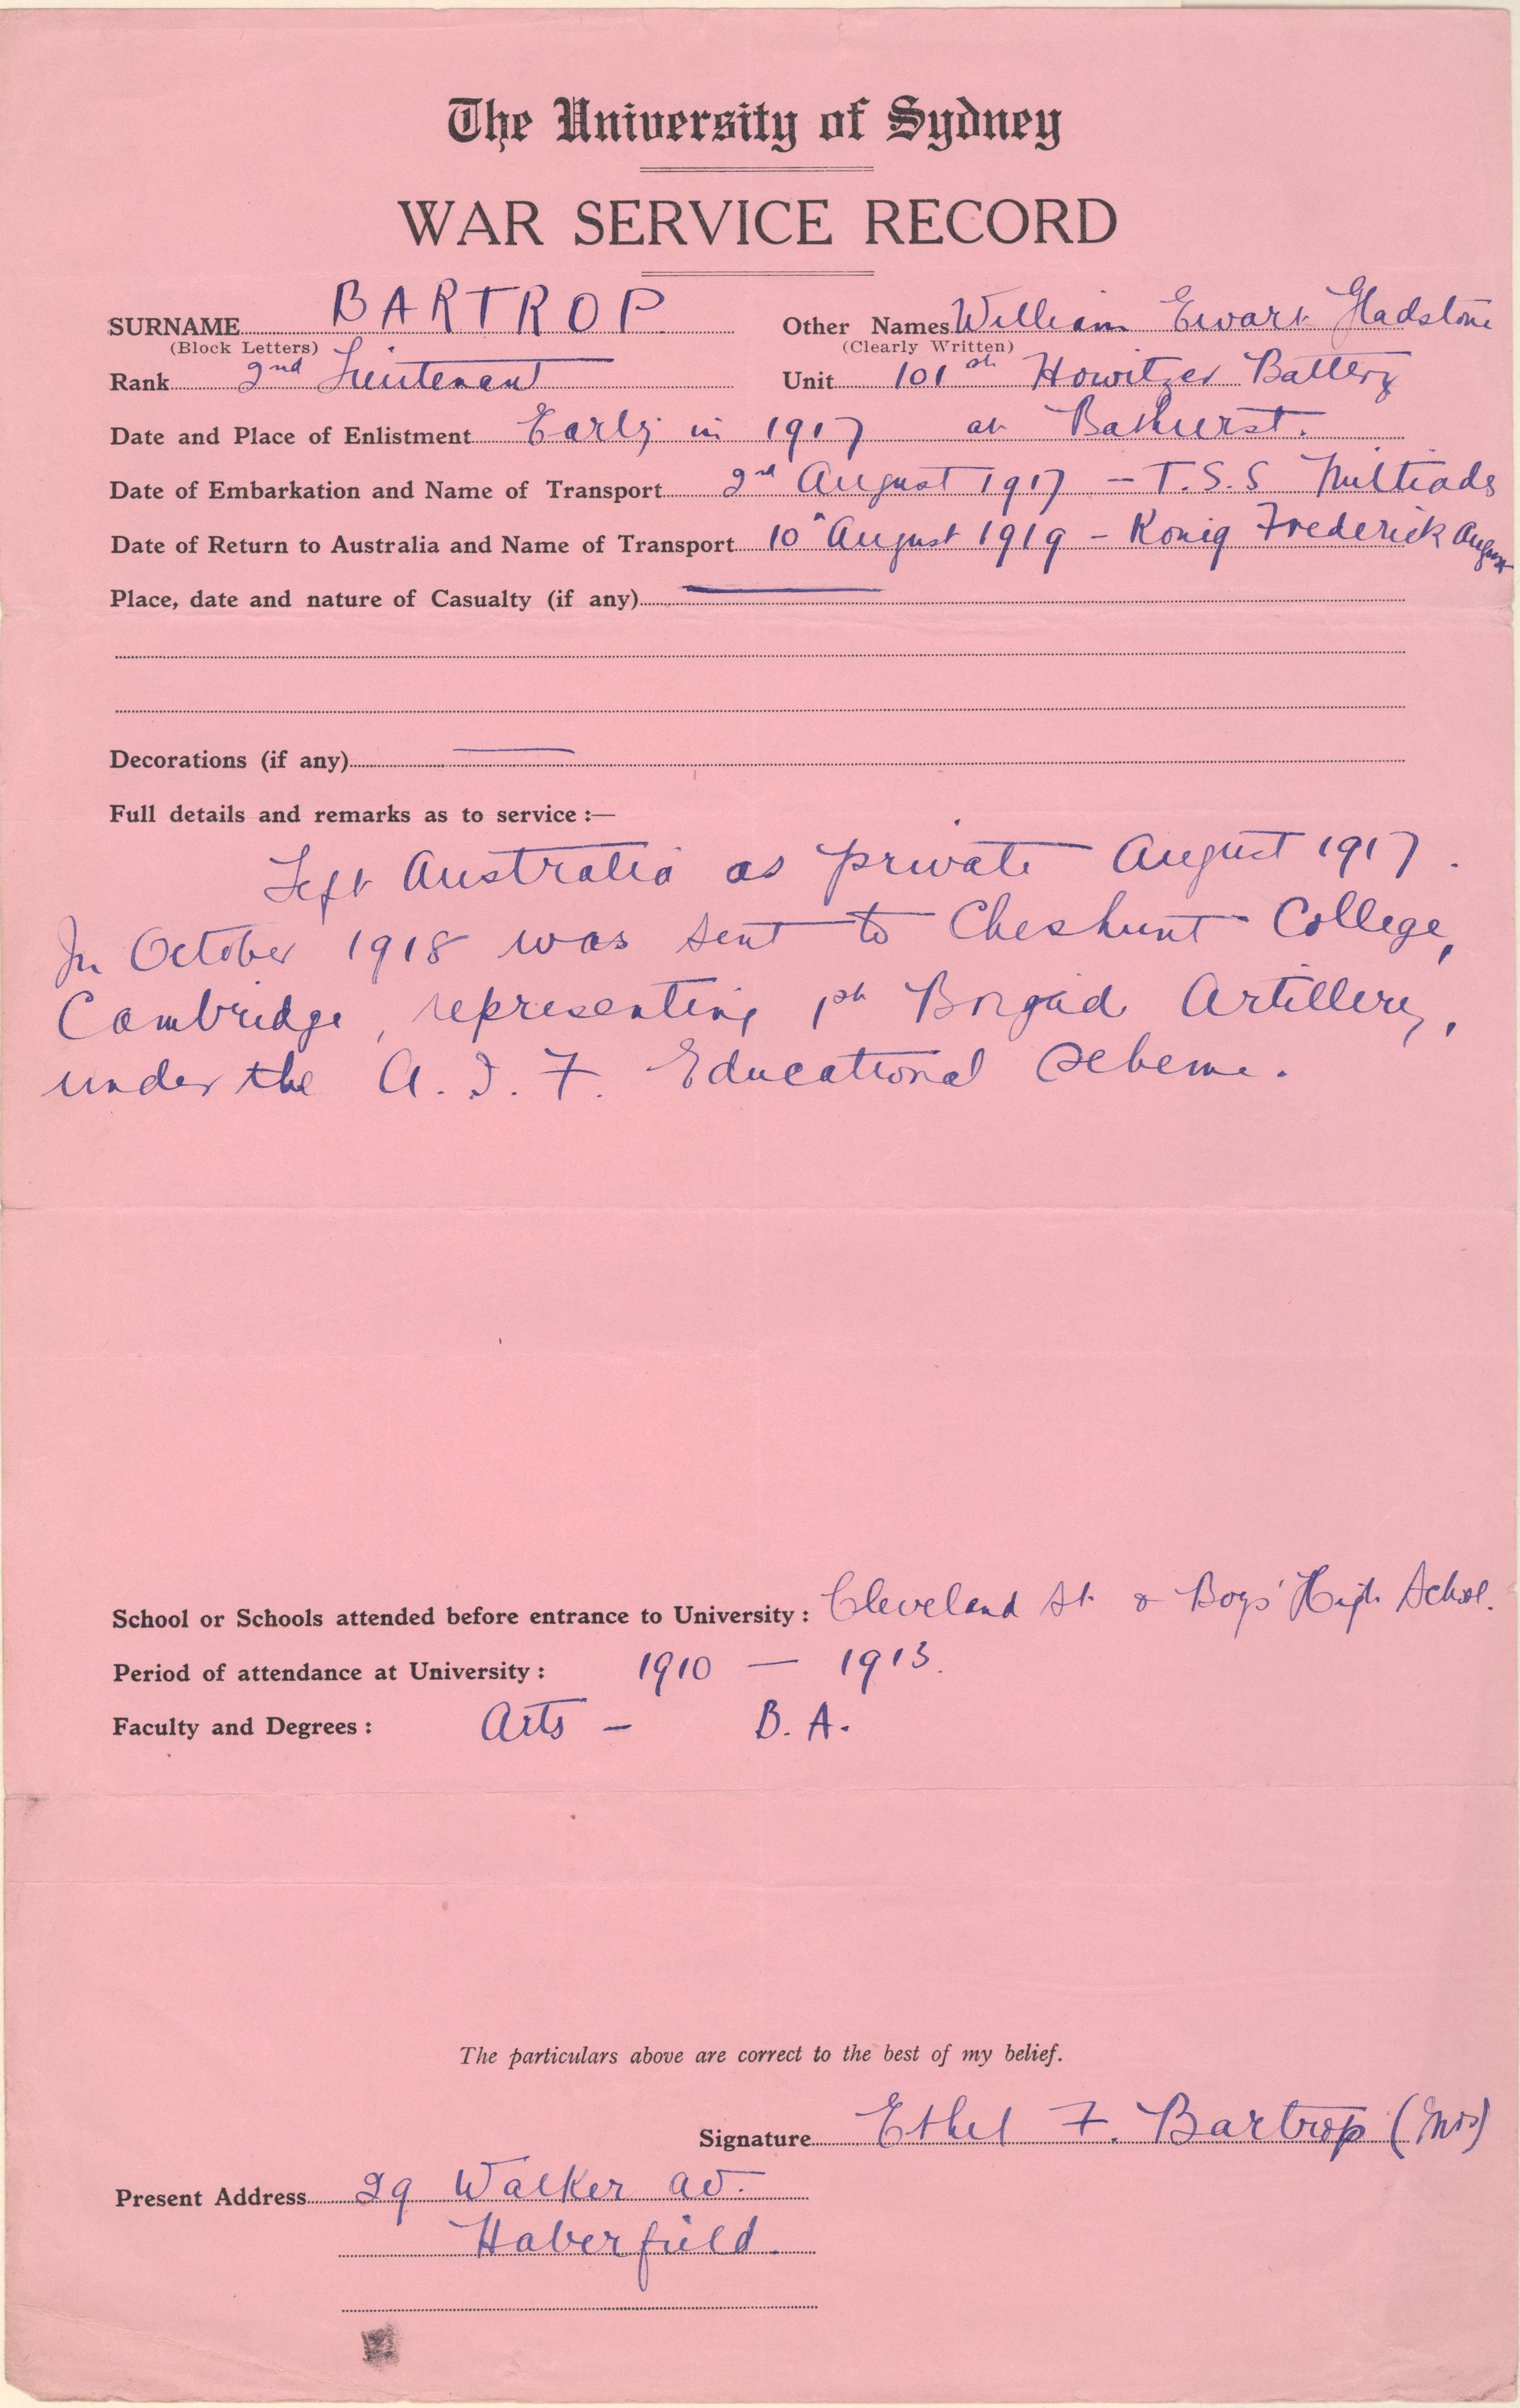 The University of Sydney
WAR SERVICE RECORD
SURNAME BARTROP Other Names William Ewart Gladstone
(Block Letters) (Clearly Written)
Rank 2nd Lieutenant Unit 101st Howitzer Battery
Date and Place of Enlistment Early in 1917 at Bathurst.
Date of Embarkation and Name of Transport 2nd August 1917 - T.S.S Miltiades
Date of Return to Australia and Name of Transport 10 August 1919 - Konig Frederick August
Place, date and nature of Casualty (if any) —
Decorations (if any) —
Full details and remarks as to service :—
Left Australia as private August 1917.
In October 1918 was sent to Cheshunt College,
Cambridge, representing 1st Brigade Artillery,
under the A. I. F. Educational Scheme.
School or Schools attended before entrance to University : Cleveland St. & Boys' High School.
Period of attendance at University : 1910 — 1913.
Faculty and Degrees : Arts - B. A.
The particulars above are correct to the best of my belief.
Signature Ethel F. Bartrop (Mrs)
Present Address 29 Walker Av.
Haberfield.